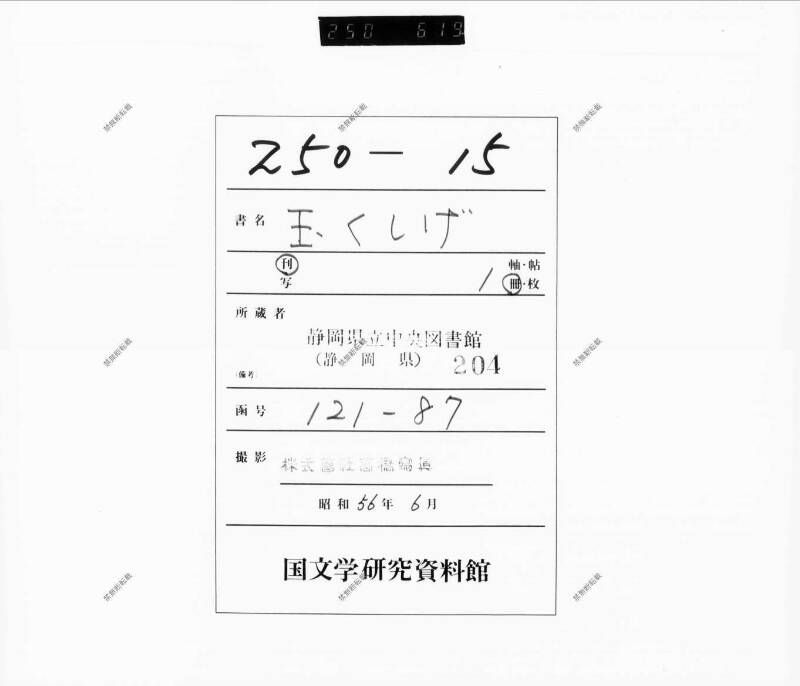 250 619
250 — 15
書名 玉くしげ
刊 軸・帖
写 1 冊・枚
所蔵者
静岡県立中央図書館
(静岡県) 204
(備考)
函号 121-87
撮影 株式会社高橋写真
昭和56年6月
国文学研究資料館
禁無断転載
禁無断転載
禁無断転載
禁無断転載
禁無断転載
禁無断転載
禁無断転載
禁無断転載
禁無断転載